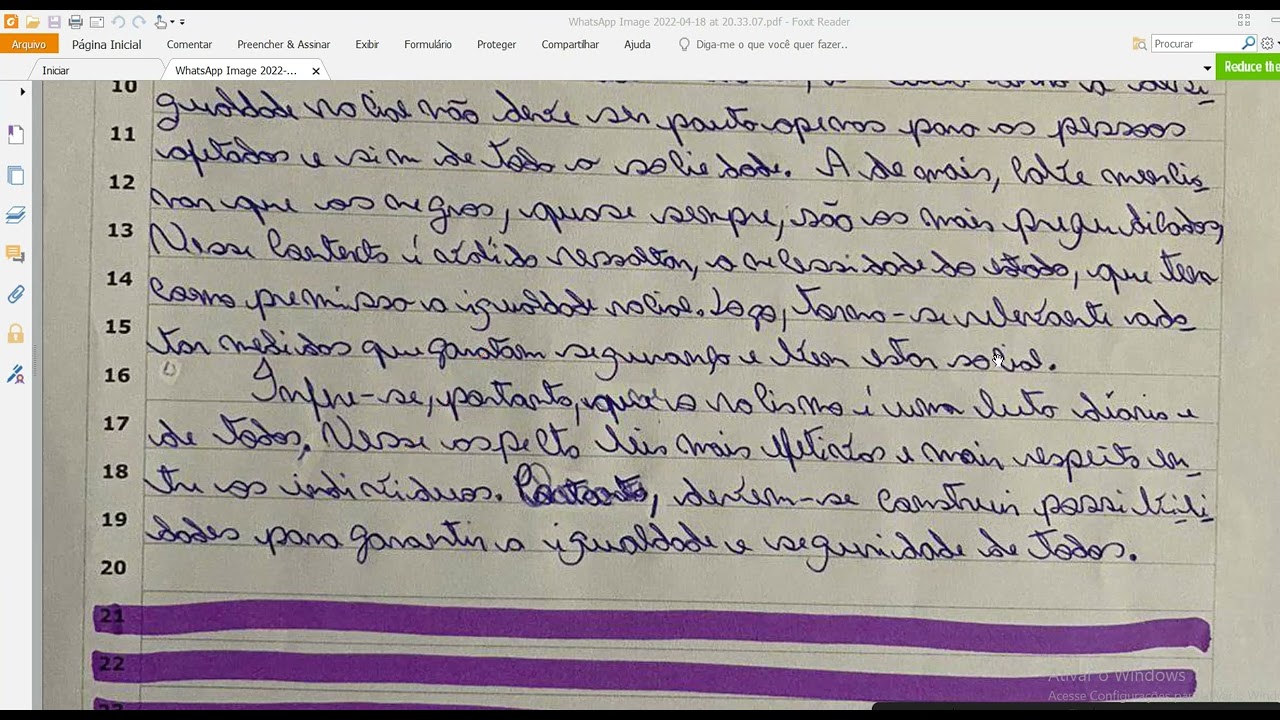 WhatsApp Image 2022-04-18 at 20.33.07.pdf - Foxit Reader
Arquivo Página Inicial Comentar Preencher & Assinar Exibir Formulário Proteger Compartilhar Ajuda Diga-me o que você quer fazer.. Procurar
Iniciar WhatsApp Image 2022-... Reduce the
10
gualdade social não deve ser pauta apenas para as pessoas
11
afetadas e sim de toda a sociedade. A de mais, cabe mencio
12
nar que os negros, quase sempre, são os mais pregudicados,
13
Nesse contexto é válido ressaltar, a necessidade do estado, que tem
14
como premissa a igualdade social. Logo, torna-se relevante ado
15
tar medidas que garatam segurança e bem estar social.
16
Infere-se, portanto, que o racismo é uma luta diária e
17
de todos, Nesse aspecto leis mais efetivas e mais respeito en_
18
tre os indivíduos. , devem-se construir possibili
19
dades para garantir a igualdade e seguridade de todos.
20
21
22
Ativar o Windows